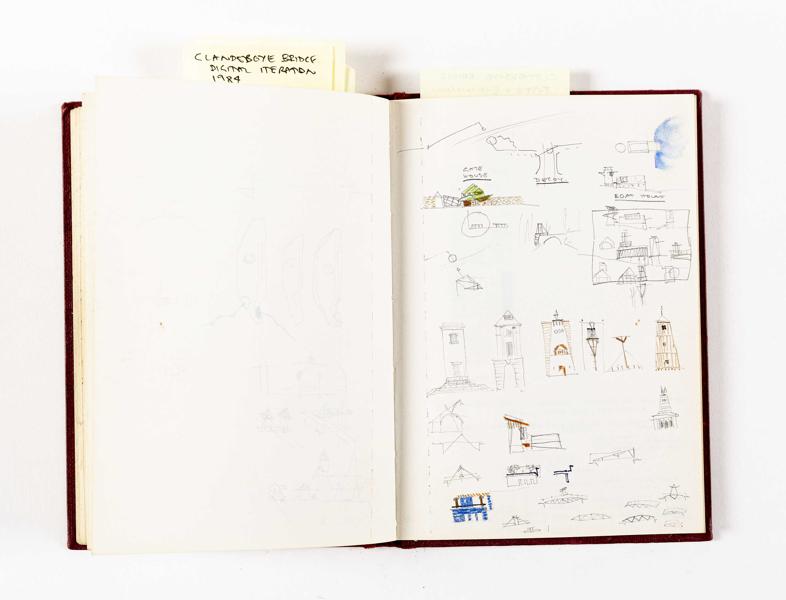 CLANDEBOYE BRIDGE
DIGITAL ITERATION
1984
GATE
HOUSE
DECOY
BOAT HOUSE